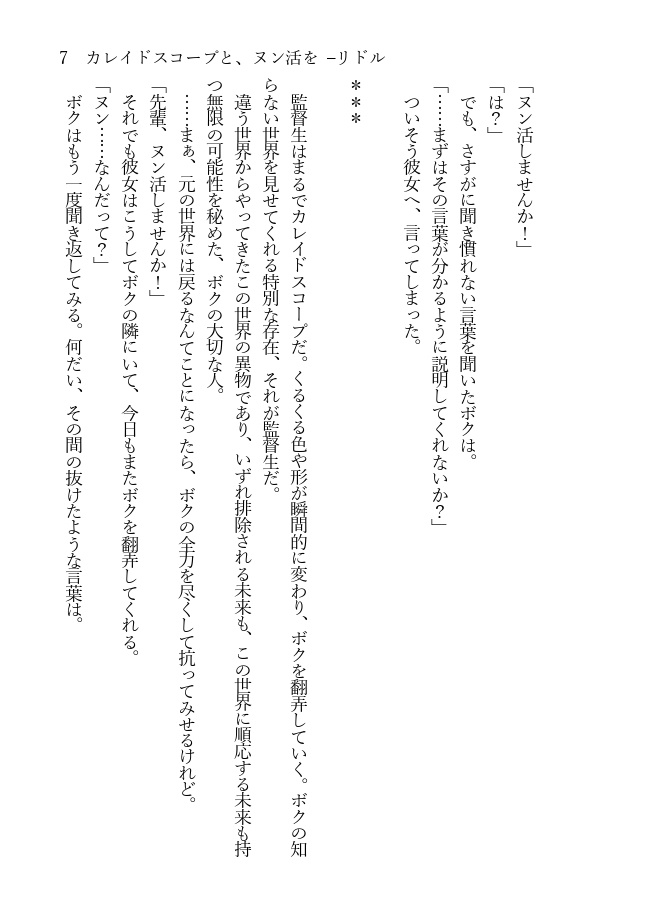 7　カレイドスコープと、ヌン活を −リドル
「ヌン活しませんか！」
「は？」
　でも、さすがに聞き慣れない言葉を聞いたボクは。
「……まずはその言葉が分かるように説明してくれないか？」
　ついそう彼女へ、言ってしまった。
＊＊＊
　監督生はまるでカレイドスコープだ。くるくる色や形が瞬間的に変わり、ボクを翻弄していく。ボクの知
らない世界を見せてくれる特別な存在、それが監督生だ。
　違う世界からやってきたこの世界の異物であり、いずれ排除される未来も、この世界に順応する未来も持
つ無限の可能性を秘めた、ボクの大切な人。
　……まぁ、元の世界には戻るなんてことになったら、ボクの全力を尽くして抗ってみせるけれど。
「先輩、ヌン活しませんか！」
　それでも彼女はこうしてボクの隣にいて、今日もまたボクを翻弄してくれる。
「ヌン……なんだって？」
　ボクはもう一度聞き返してみる。何だい、その間の抜けたような言葉は。